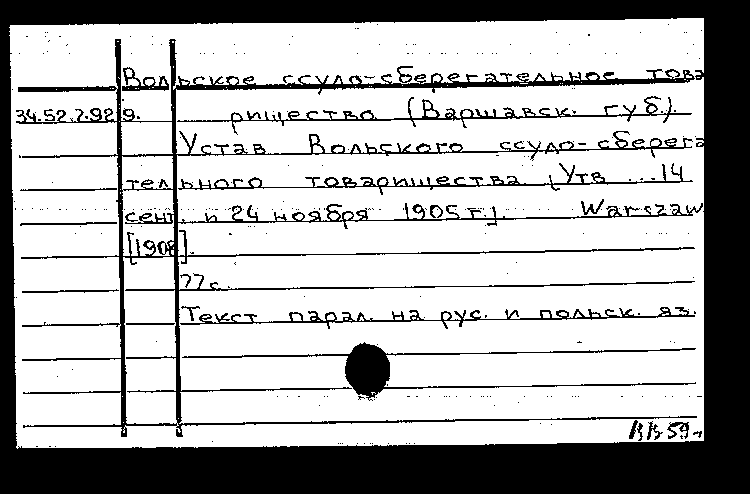 Вольское ссудо-сберегательное това
34.52.7.92 9. рищество (Варшавск. губ).
Устав Вольского ссудо-сберега
тельного товарищества [Утв ...14
сент. и 24 ноября 1905 г.]. Warszaw
[1906].
77 с.
Текст парал. на рус. и польск. яз.
59